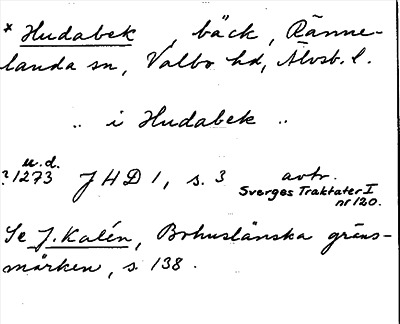 * Hudabek, bäck, Ränne-
landa sn, Valbo hd, Älvsb. l.
„ i Hudabek „
u.d.
?1273 JHD 1, s. 3 avtr.
Sverges Traktater I
nr 120.
Se J. Kalén, Bohuslänska gräns-
märken, s. 138.